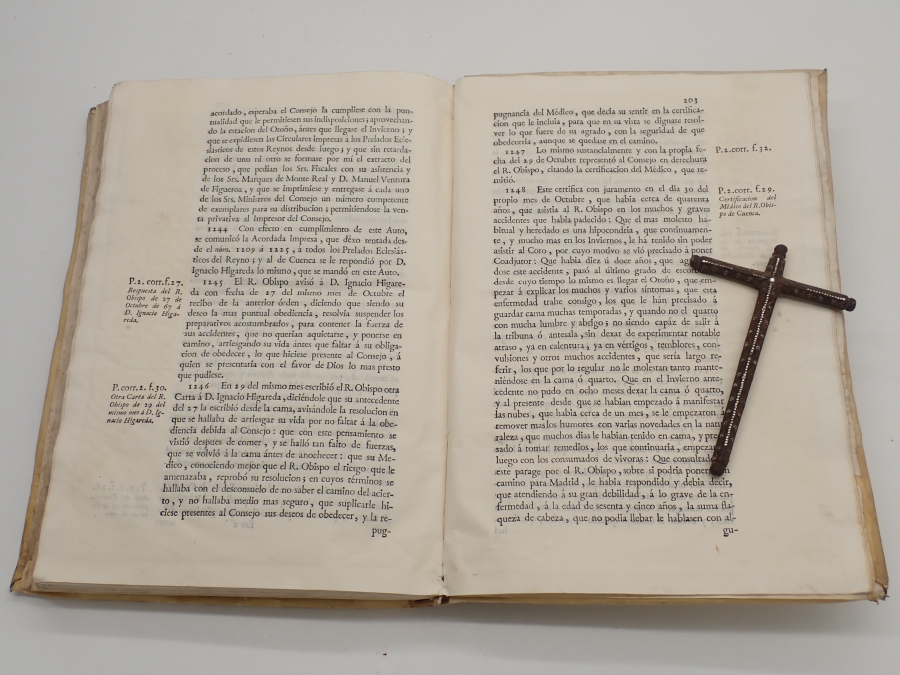 acordado, esperaba el Consejo la cumpliese con la pun-
tualidad que le permitiesen sus indisposiciones; aprovechan-
do la estacion del Otoño, ántes que llegase el Invierno; y
que se expidiesen las Circulares impresas á los Prelados Ecle-
siásticos de estos Reynos desde luego; y que sin retarda-
cion de uno ni otro se formase por mí el extracto del
proceso, que pedian los Srs. Fiscales con su asistencia y
de los Srs. Marques de Monte Real y D. Manuel Ventura
de Figueroa, y que se imprimiese y entregase á cada uno
de los Srs. Ministros del Consejo un número competente
de exemplares para su distribucion; permitiéndose la ven-
ta privativa al Impresor del Consejo.
1244 Con efecto en cumplimiento de este Auto,
se comunicó la Acordada impresa, que dexo sentada des-
de el num. 1209 á 1225, á todos los Prelados Eclesiás-
ticos del Reyno; y al de Cuenca se le respondió por D.
Ignacio Higareda lo mismo, que se mandó en este Auto.
P.2. corr.f.27.
Respuesta del R.
Obispo de 27 de
Octubre de 67 á
D. Ignacio Higa-
reda.
1245 El R. Obispo avisó á D. Ignacio Higare-
da con fecha de 27 del mismo mes de Octubre el
recibo de la anterior órden, diciendo que siendo su
deseo la mas puntual obediencia, resolvia suspender los
preparativos acostumbrados, para contener la fuerza de
sus accidentes, que no querian aquietarse, y ponerse en
camino, arriesgando su vida ántes que faltar á su obliga-
cion de obedecer, lo que hiciese presente al Consejo, á
quien se presentaría con el favor de Dios lo mas presto
que pudiese.
P.corr.2. f.30.
Otra Carta del R.
Obispo de 29 del
mismo mes á D. Ig-
nacio Higareda.
1246 En 29 del mismo mes escribió el R. Obispo otra
Carta á D. Ignacio Higareda, diciéndole que su antecedente
del 27 la escribió desde la cama, avisándole la resolucion en
que se hallaba de arriesgar su vida por no faltar á la obe-
diencia debida al Consejo: que con este pensamiento se
vistió despues de comer, y se halló tan falto de fuerzas,
que se volvió á la cama ántes de anochecer: que su Me-
dico, conociendo mejor que el R. Obispo el riesgo que le
amenazaba, reprobó su resolucion; en cuyos términos se
hallaba con el desconsuelo de no saber el camino del acier-
to, y no hallaba medio mas seguro, que suplicarle hi-
ciese presentes al Consejo sus deseos de obedecer, y la re-
pug-
203
pugnancia del Médico, que decia su sentir en la certifica-
cion que le incluía, para que en su vista se dignase resol-
ver lo que fuere de su agrado, con la seguridad de que
obedecería, aunque se quedase en el camino.
1247 Lo mismo sustancialmente y con la propia fe-
cha del 29 de Octubre representó al Consejo en derechura
el R. Obispo, citando la certificacion del Médico, que re-
mitió.
P.2.corr. f.32.
1248 Este certifica con juramento en el dia 30 del
propio mes de Octubre, que habia cerca de quarenta
años, que asistia al R. Obispo en los muchos y graves
accidentes que habia padecido: Que el mas molesto ha-
bitual y heredado es una hipocondria, que continuamen-
te, y mucho mas en los Inviernos, le há tenido sin poder
asistir al Coro, por cuyo motivo se vió precisado á poner
Coadjutor: Que habia diez ú doce años, que
dose este accidente, pasó al último grado de
desde cuyo tiempo lo mismo es llegar el Otoño, que em-
pezar á explicar los muchos y varios síntomas, que esta
enfermedad trahe consigo, los que le hán precisado á
guardar cama muchas temporadas, y quando no el quarto
con mucha lumbre y abrigo; no siendo capáz de salir á
la tribuna ó antesala, sin dexar de experimentar notable
atraso, ya en calentura; ya en vértigos, temblores, con-
vulsiones y otros muchos accidentes, que sería largo re-
ferir, los que por lo regular no le molestan tanto mante-
niéndose en la cama ó quarto. Que en el Invierno ante-
cedente no pudo en ocho meses dexar la cama ó quarto,
y al presente desde que se habian empezado á manifestar
las nubes, que habia cerca de un mes, se le empezaron á
remover mas los humores con varias novedades en la natu-
raleza, que muchos dias le habian tenido en cama, y pre-
sado á tomar remedios, los que continuaría,
luego con los consumados de vivoras: Que
este parage por el R. Obispo, sobre si podria
camino para Madrid, le habia respondido y debia decir,
que atendiendo á su gran debilidad, á lo grave de la en-
fermedad, á la edad de sesenta y cinco años, la suma fla-
queza de cabeza, que no podia llebar le hablasen con al-
gu-
P.2.corr. f.29.
Certificacion del
Médico del R.Obis-
po de Cuenca.